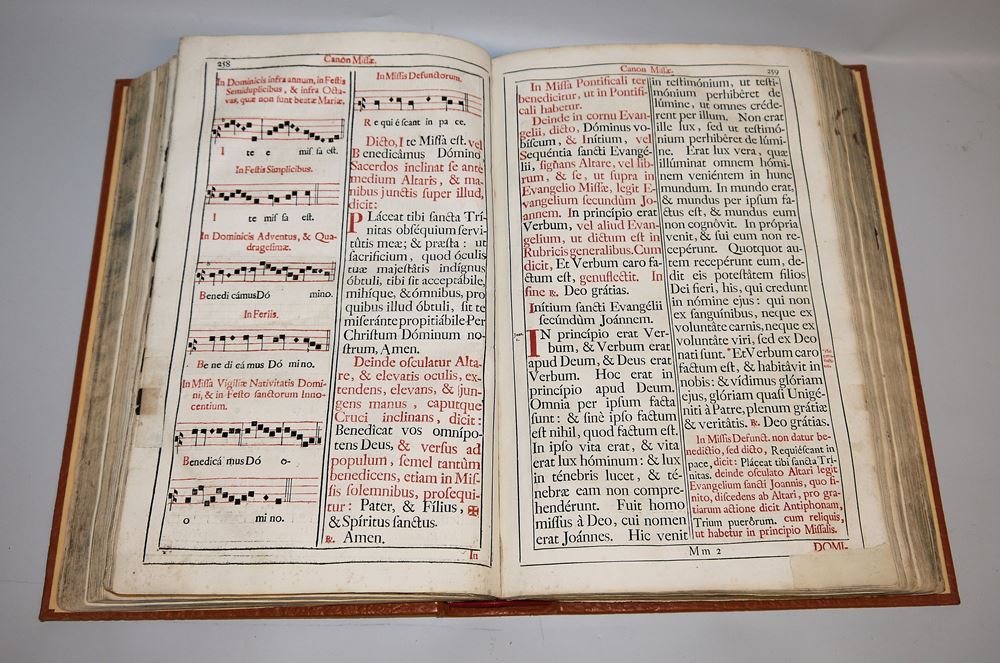 258
Canon Missæ.
In Dominicis infra annum, in Festis
Semiduplicibus, & infra Octa-
vas, quæ non sunt beatæ Mariæ.
I te e mis sa est.
In Festis Simplicibus.
I te mis sa est.
In Dominicis Adventus, & Qua-
dragesimæ.
Benedi cámusDó mino.
In Feriis.
Be ne di cá mus Dó mino.
In Missa Vigiliæ Nativitatis Domi-
ni, & in Festo sanctorum Inno-
centium.
Benedicá musDó o-
o mi no.
In Missis Defunctorum.
R e qui é scant in pa ce.
Dicto, I te Missa est. vel
Benedicâmus Dómino
Sacerdos inclinat se ante
medium Altaris, & ma-
nibus junctis super illud,
dicit:
PLáceat tibi sancta Trí-
nitas obséquium servi-
tûtis meæ; & præsta: ut
sacrificium, quod óculis
tuæ majestâtis indígnus
óbtuli, tibi sit acceptábile,
mihíque, & ómnibus, pro
quibus illud óbtuli, sit te
miseránte propitiábile Per
Christum Dóminum no-
strum, Amen.
Deinde osculatur Alta-
re, & elevatis oculis, ex-
tendens, elevans, & jun-
gens manus, caputque
Cruci inclinans, dicit:
Benedicat vos omnípo-
tens Deus, & versus ad
populum, semel tantùm
benedicens, etiam in Mis-
sis solemnibus, prosequi-
tur: Pater, & Fílius, ✠
& Spíritus sanctus.
℟. Amen.
In
Canon Missæ.
259
In Missa Pontificali ter
benedicitur, ut in Pontifi-
cali habetur.
Deinde in cornu Evan-
gelii, dicto, Dóminus vo-
bíscum, & Inítium, vel
Sequéntia sancti Evangé-
lii, signans Altare, vel lib-
rum, & se, ut supra in
Evangelio Missæ, legit E-
vangelium secundùm Jo-
annem. In princípio erat
Verbum, vel aliud Evan-
gelium, ut dictum est in
Rubricis generalibus. Cum
dicit, Et Verbum caro fa-
ctum est, genuflectit. In
fine ℟. Deo grátias.
Inítium sancti Evangélii
secúndùm Joánnem.
IN princípio erat Ver-
bum, & Verbum erat
apud Deum, & Deus erat
Verbum. Hoc erat in
princípio apud Deum.
Omnia per ipsum facta
sunt: & sinè ipso factum
est nihil, quod factum est.
In ipso vita erat, & vita
erat lux hóminum: & lux
in ténebris lucet, & té-
nebræ eam non compre-
hendérunt. Fuit homo
missus à Deo, cui nomen
erat Joánnes. Hic venit
in testimónium, ut testi-
mónium perhibêret de
lúmine, ut omnes créde-
rent per illum. Non erat
ille lux, sed ut testimó-
nium perhibêret de lúmi-
ne. Erat lux vera, quæ
illúminat omnem hómi-
nem veniéntem in hunc
mundum. In mundo erat,
& mundus per ipsum fa-
ctus est, & mundus eum
non cognôvit. In própria
venit, & sui eum non re-
cepérunt. Quotquot au-
tem recepérunt eum, de-
dit eis potestâtem filios
Dei fíeri, his, qui credunt
in nómine ejus: qui non
ex sanguínibus, neque ex
voluntâte carnis, neque ex
voluntâte viri, sed ex Deo
nati sunt. *Et Verbum caro
factum est, & habitâvit in
nobis: & vídimus glóriam
ejus, glóriam quasi Unigé-
niti à Patre, plenum grátiæ
& veritâtis. ℟. Deo grátias.
In Missis Defunct. non datur be-
nedictio, sed dicto, Requiéscant in
pace, dicit: Pláceat tibi sancta Trí-
nitas. deinde osculato Altari legit
Evangelium sancti Joannis, quo fi-
nito, discedens ab Altari, pro gra-
tiarum actione dicit Antiphonam,
Trium puerôrum. cum reliquis,
ut habetur in principio Missalis.
Mm 2
DOMI-